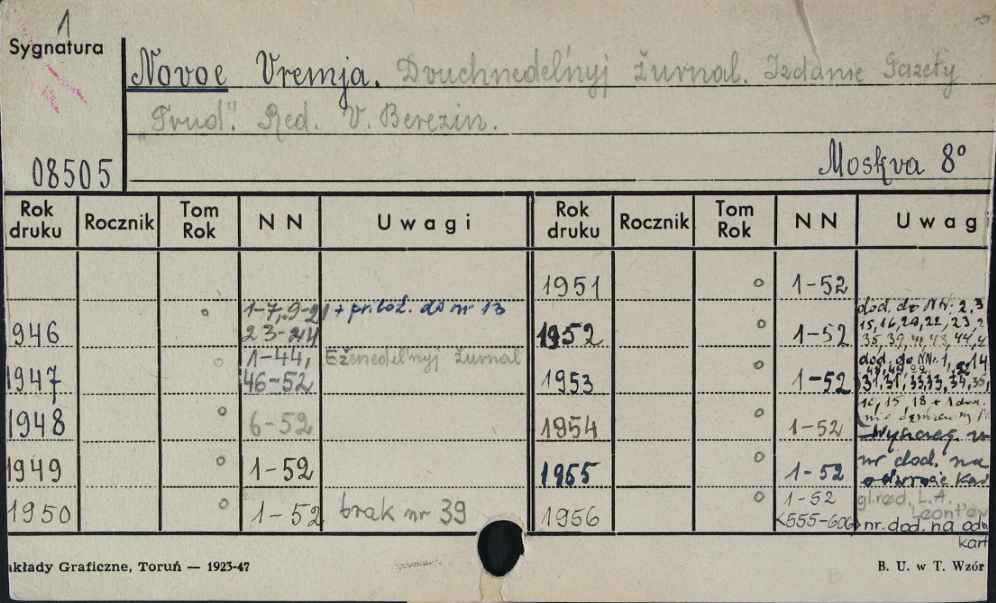 1
Sygnatura
Novoe Vremja. Dvuchnedel'nyj žurnal. Izdanie Gazety
"Trud". Red. V. Berezin.
08505
Moskva 8°
Rok druku Rocznik Tom Rok NN Uwagi Rok druku Rocznik Tom Rok NN Uwag
1951 ° 1-52
946 ° 1-7, 9-21 23-24 + prilož. do nr 13
1952 ° 1-52 dod. do NN. 2, 3
15, 16, 20, 22, 23, 2
1947 ° 1-44, 46-52 Eženedel'nyj žurnal
1953 ° 1-52 dod. do NN. 1, 14
1948 ° 6-52
1954 ° 1-52 15 18 + 1 dod.
1949 ° 1-52
1955 ° 1-52 nr dod. na odwrocie kart
1950 ° 1-52 brak nr 39
1956 ° 1-52 <555-606> gl. red. L. A. Leont'ev
nr. dod. na odw
kart
akłady Graficzne, Toruń — 1923-47
B. U. w T. Wzór